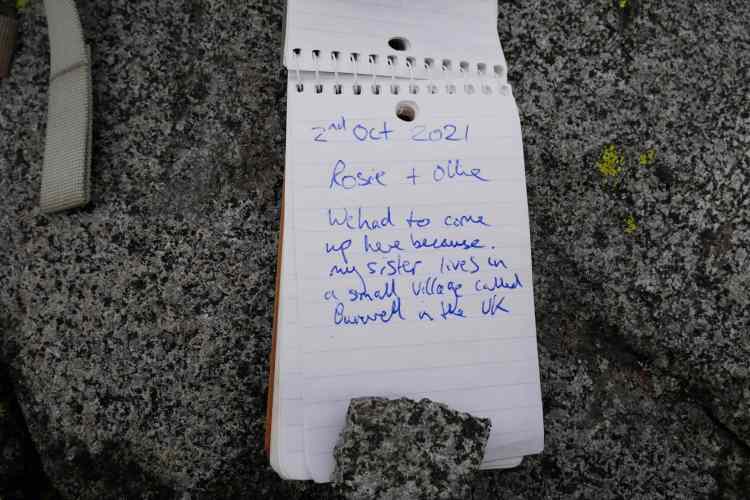 2nd Oct 2021
Rosie + Ollie
We had to come
up here because.
my sister lives in
a small village called
Burwell in the UK